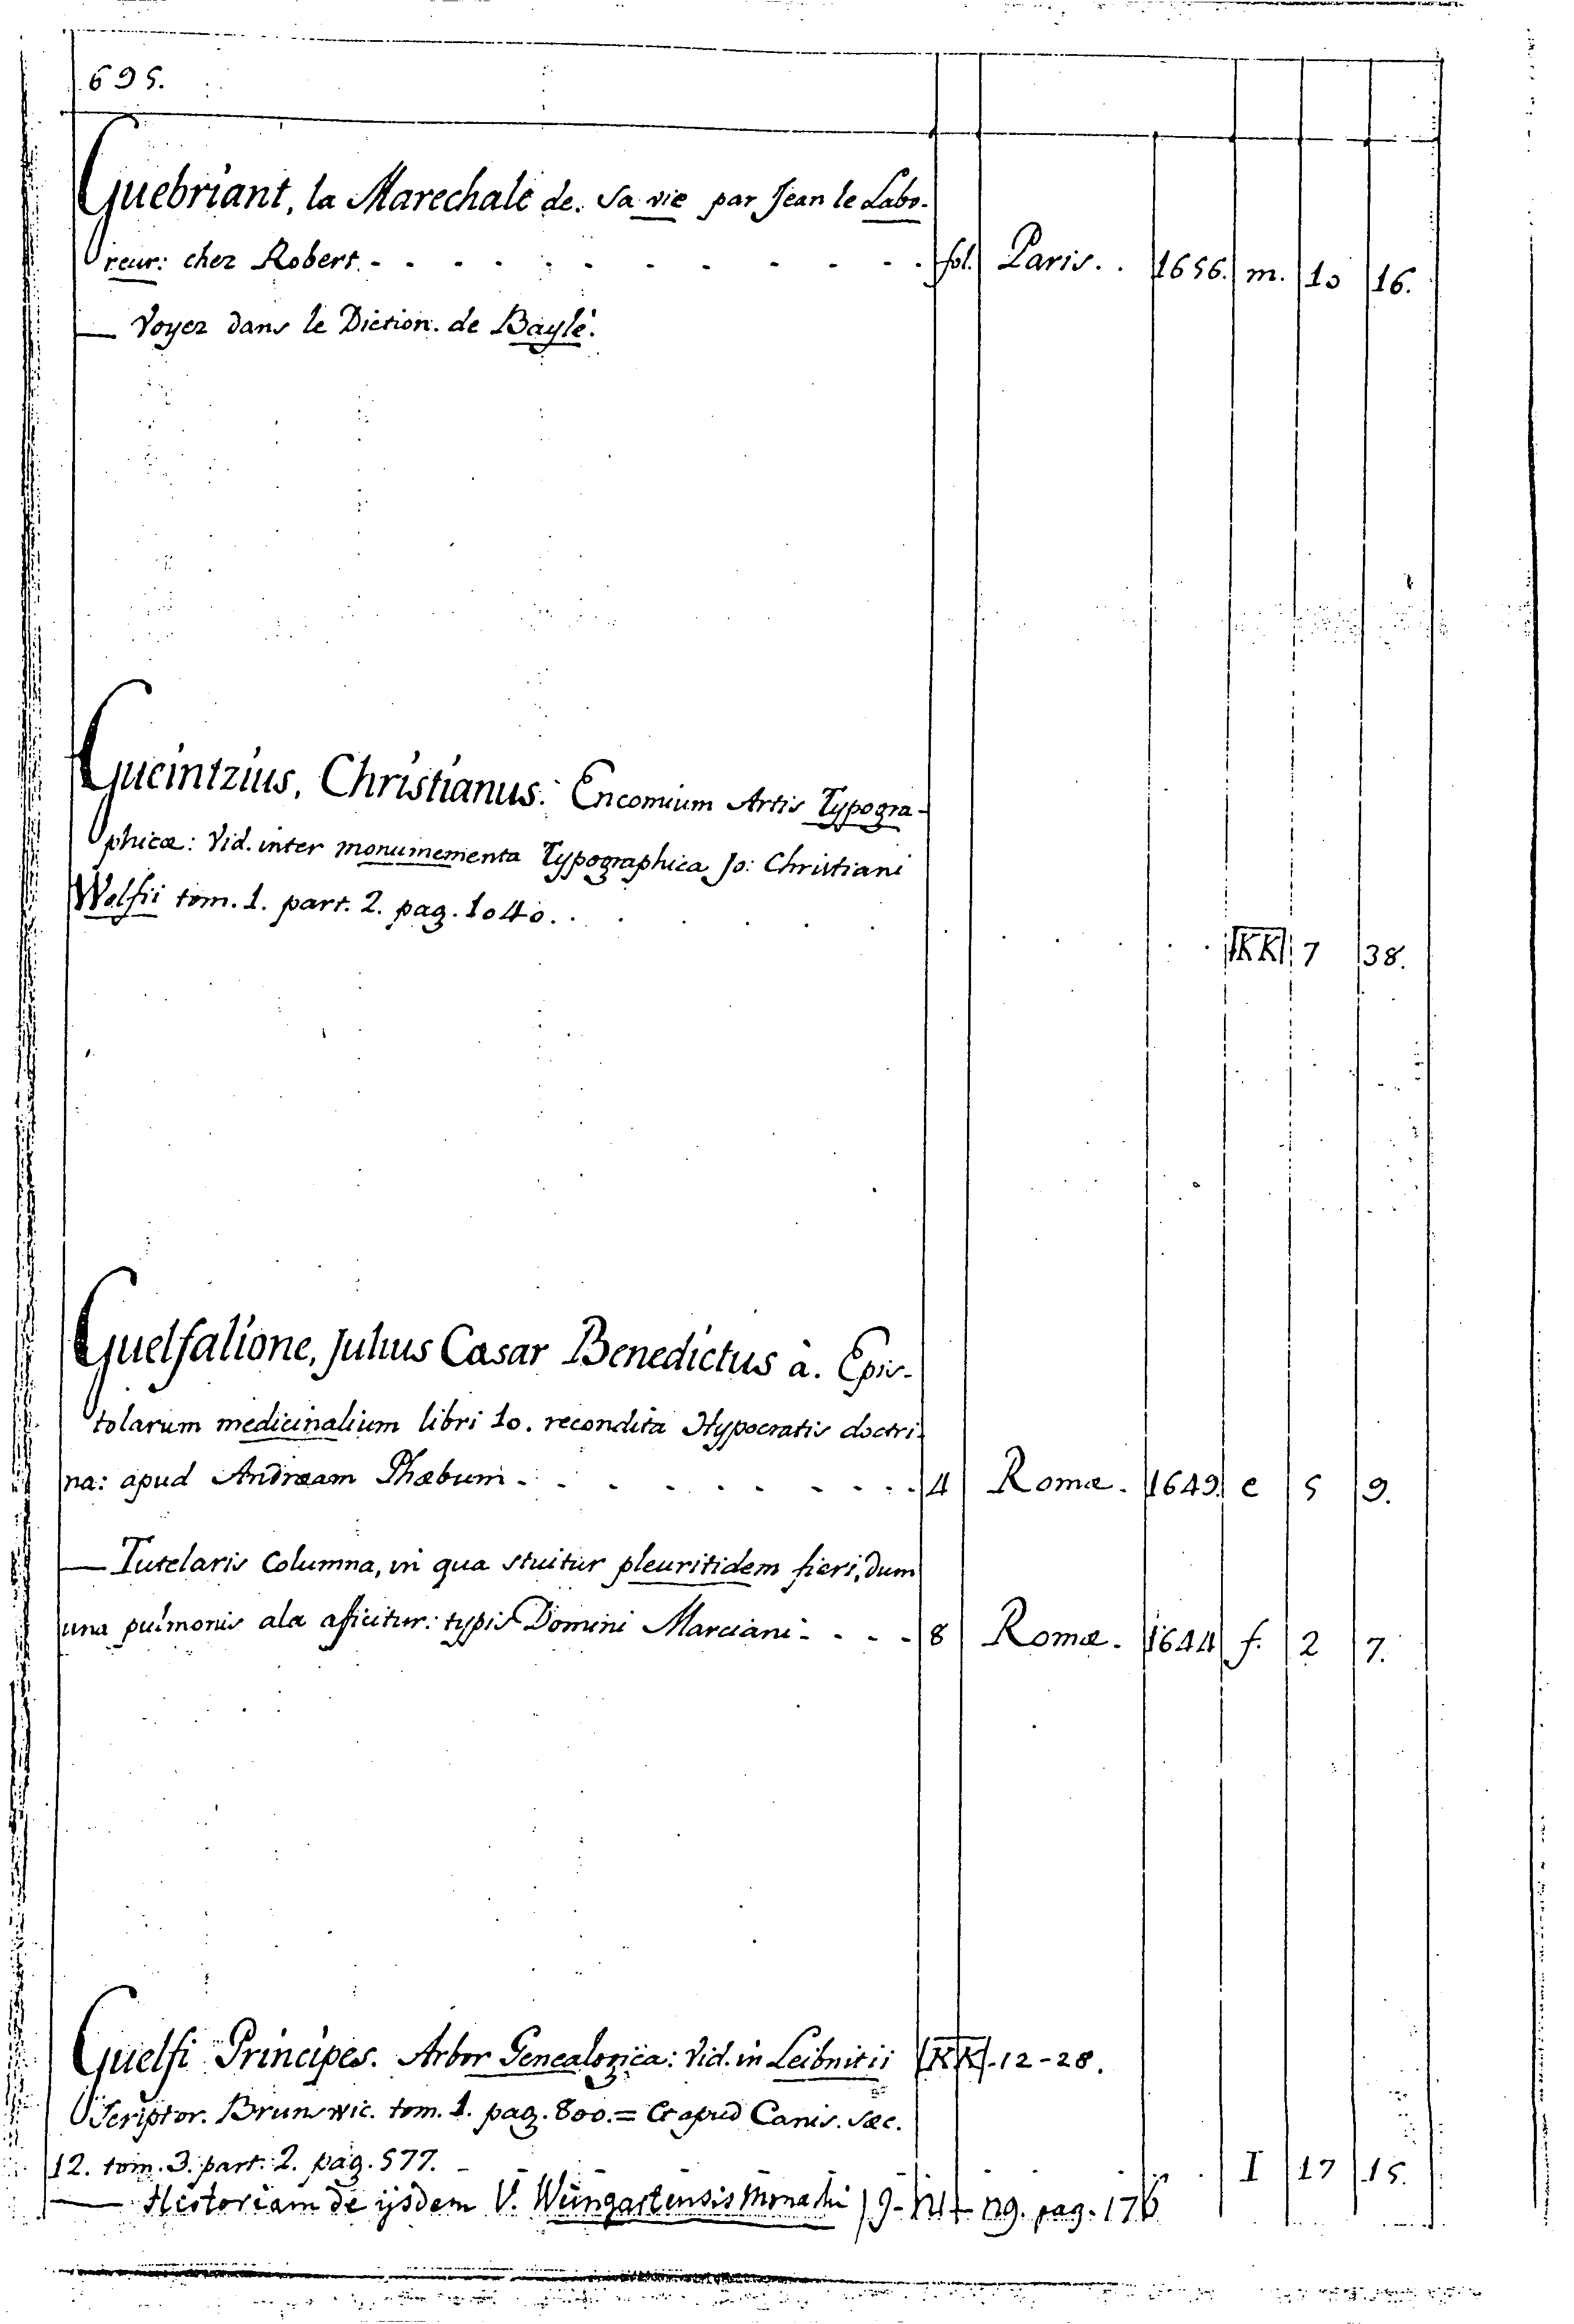 695.
Guebriant, la Marechale de. Sa vie par Jean le Labo-
reur: chez Robert. fol. Paris. . 1656. m. 10 16.
— Voyez dans le Diction. de Bayle.
Gueintzius, Christianus. Encomium Artis Typogra-
phicæ: Vid. inter monumementa Typographica Jo: Christiani
Wolfii tom. 1. part. 2. pag. 1040. . KK 7 38.
Guelfalione, Julius Cæsar Benedictus à. Epis-
tolarum medicinalium libri 10. recondita Hypocratis doctri-
na: apud Andræam Phæbum 4 Romæ. 1649. e 5 9.
— Tutelaris Columna, in qua stuitur pleuritidem fieri, dum
una pulmonis ala afficitur: typis Domini Marciani 8 Romæ. 1644 f. 2 7.
Guelfi Principes. Arbor Genealogica: Vid. in Leibnitii KK.-12-28.
Scriptor. Brunswic. tom. 1. pag. 800. = Et apud Canis. Sæc.
12. tom. 3. part. 2. pag. 577. I 17 15.
— Historiam de ijsdem V. Weingartensis Monachi pag. 176